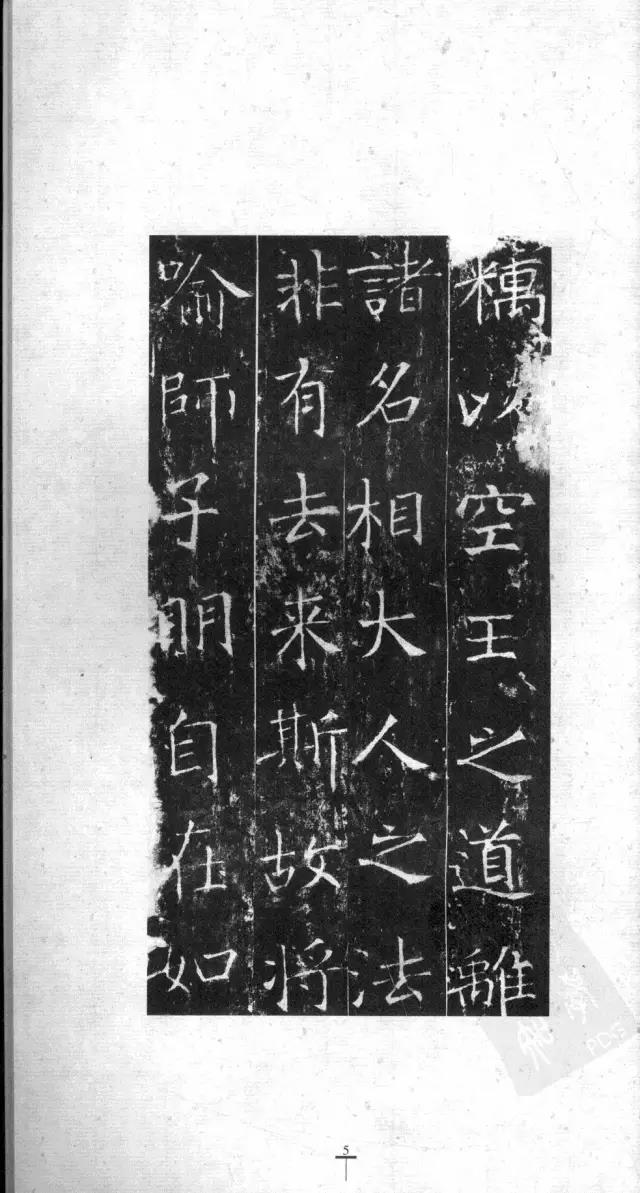 竊以空王之道離
諸名相大人之法
非有去来斯故将
喻師子明自在如
PDG
5